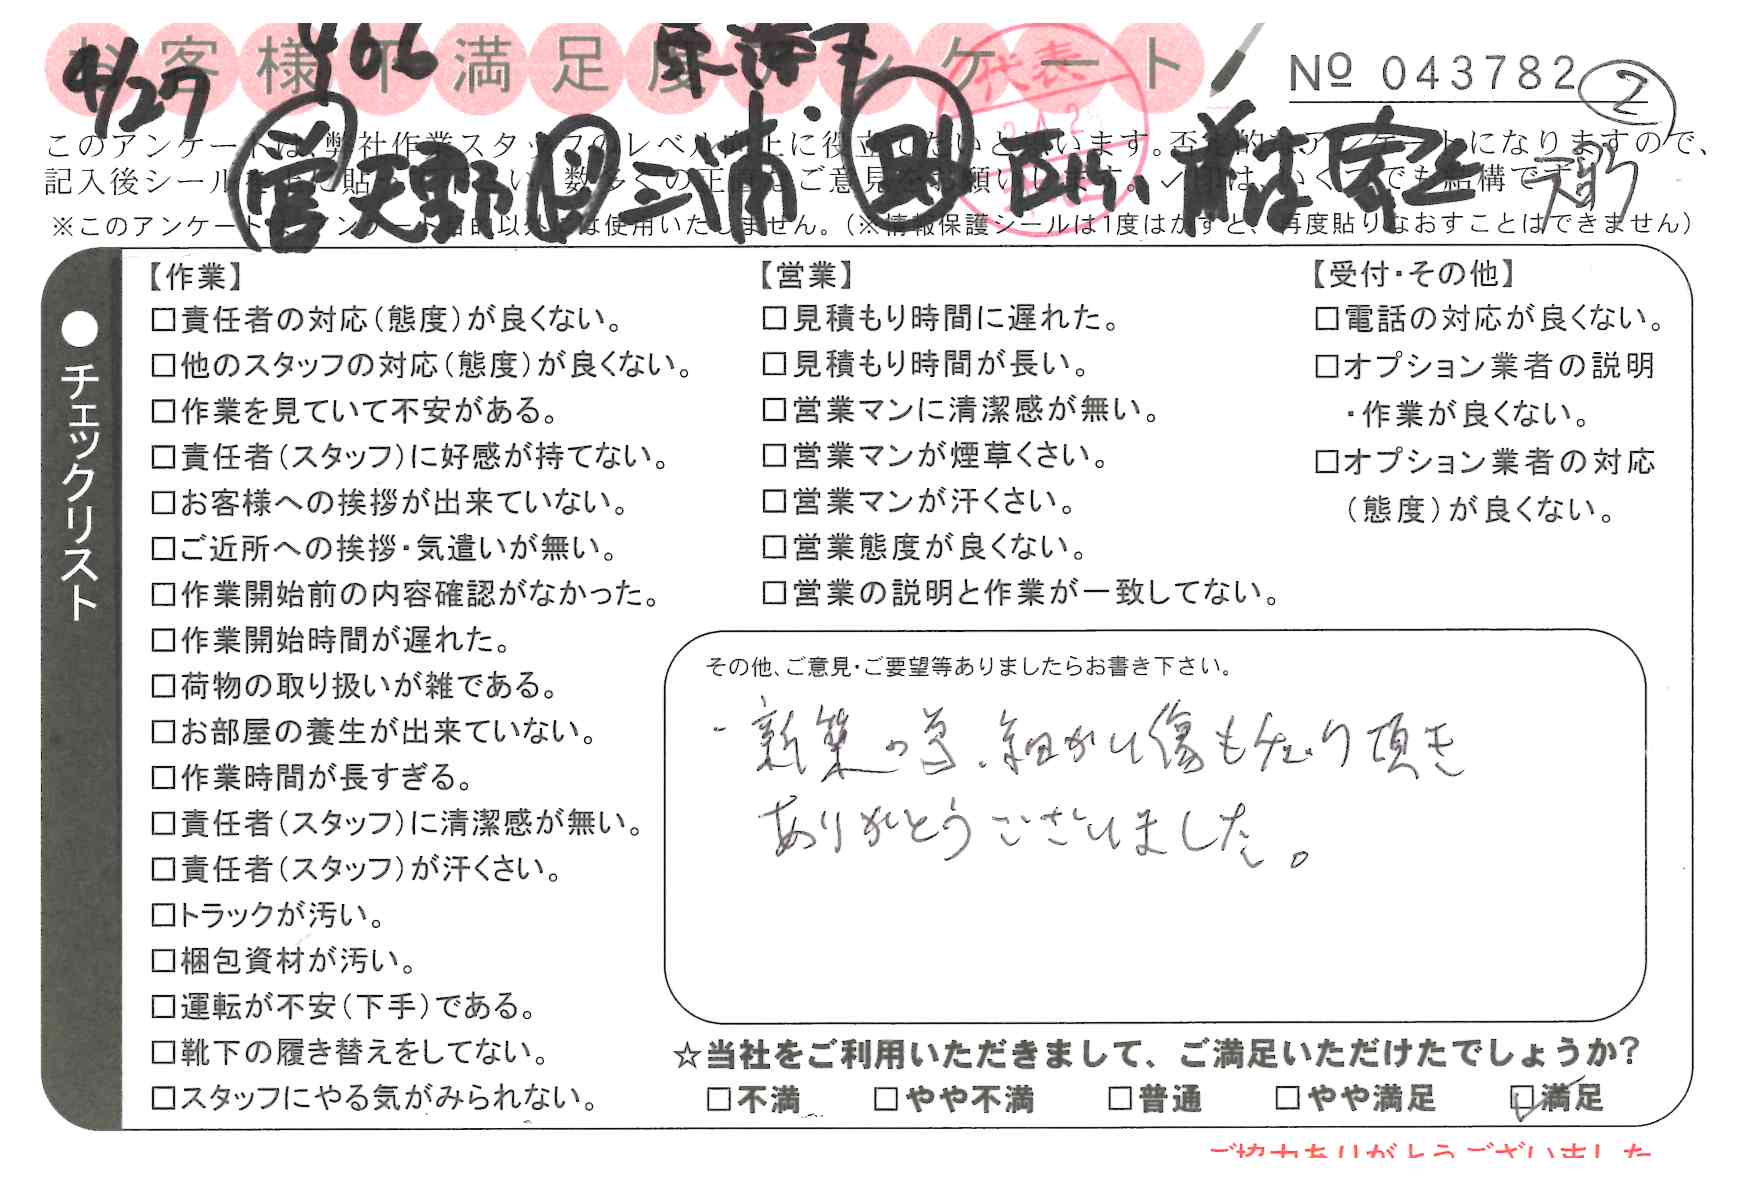 お客様不満足度アンケート
4/27
Nº 043782
2
このアンケートは、弊社作業スタッフのレベル向上に役立てたいと思います。否定的なアンケートになりますので、
記入後シールを上に貼
数多くの正直なご意見をお願いします。
いくつでも結構です
※このアンケートはアンケート目的以外には使用いたしません。(※情報保護シールは1度はがすと、再度貼りなおすことはできません)
営 天野 三浦
代表
●チェックリスト
【作業】
□責任者の対応(態度)が良くない。
□他のスタッフの対応(態度)が良くない。
□作業を見ていて不安がある。
□責任者(スタッフ)に好感が持てない。
□お客様への挨拶が出来ていない。
□ご近所への挨拶・気遣いが無い。
□作業開始前の内容確認がなかった。
□作業開始時間が遅れた。
□荷物の取り扱いが雑である。
□お部屋の養生が出来ていない。
□作業時間が長すぎる。
□責任者(スタッフ)に清潔感が無い。
□責任者(スタッフ)が汗くさい。
□トラックが汚い。
□梱包資材が汚い。
□運転が不安(下手)である。
□靴下の履き替えをしてない。
□スタッフにやる気がみられない。
【営業】
□見積もり時間に遅れた。
□見積もり時間が長い。
□営業マンに清潔感が無い。
□営業マンが煙草くさい。
□営業マンが汗くさい。
□営業態度が良くない。
□営業の説明と作業が一致してない。
【受付・その他】
□電話の対応が良くない。
□オプション業者の説明
・作業が良くない。
□オプション業者の対応
(態度)が良くない。
その他、ご意見・ご要望等ありましたらお書き下さい。
・新築の為、細かい傷もチェック頂き
ありがとうございました。
☆当社をご利用いただきまして、ご満足いただけたでしょうか?
□不満 □やや不満 □普通 □やや満足 ☑満足
ご協力ありがとうございました